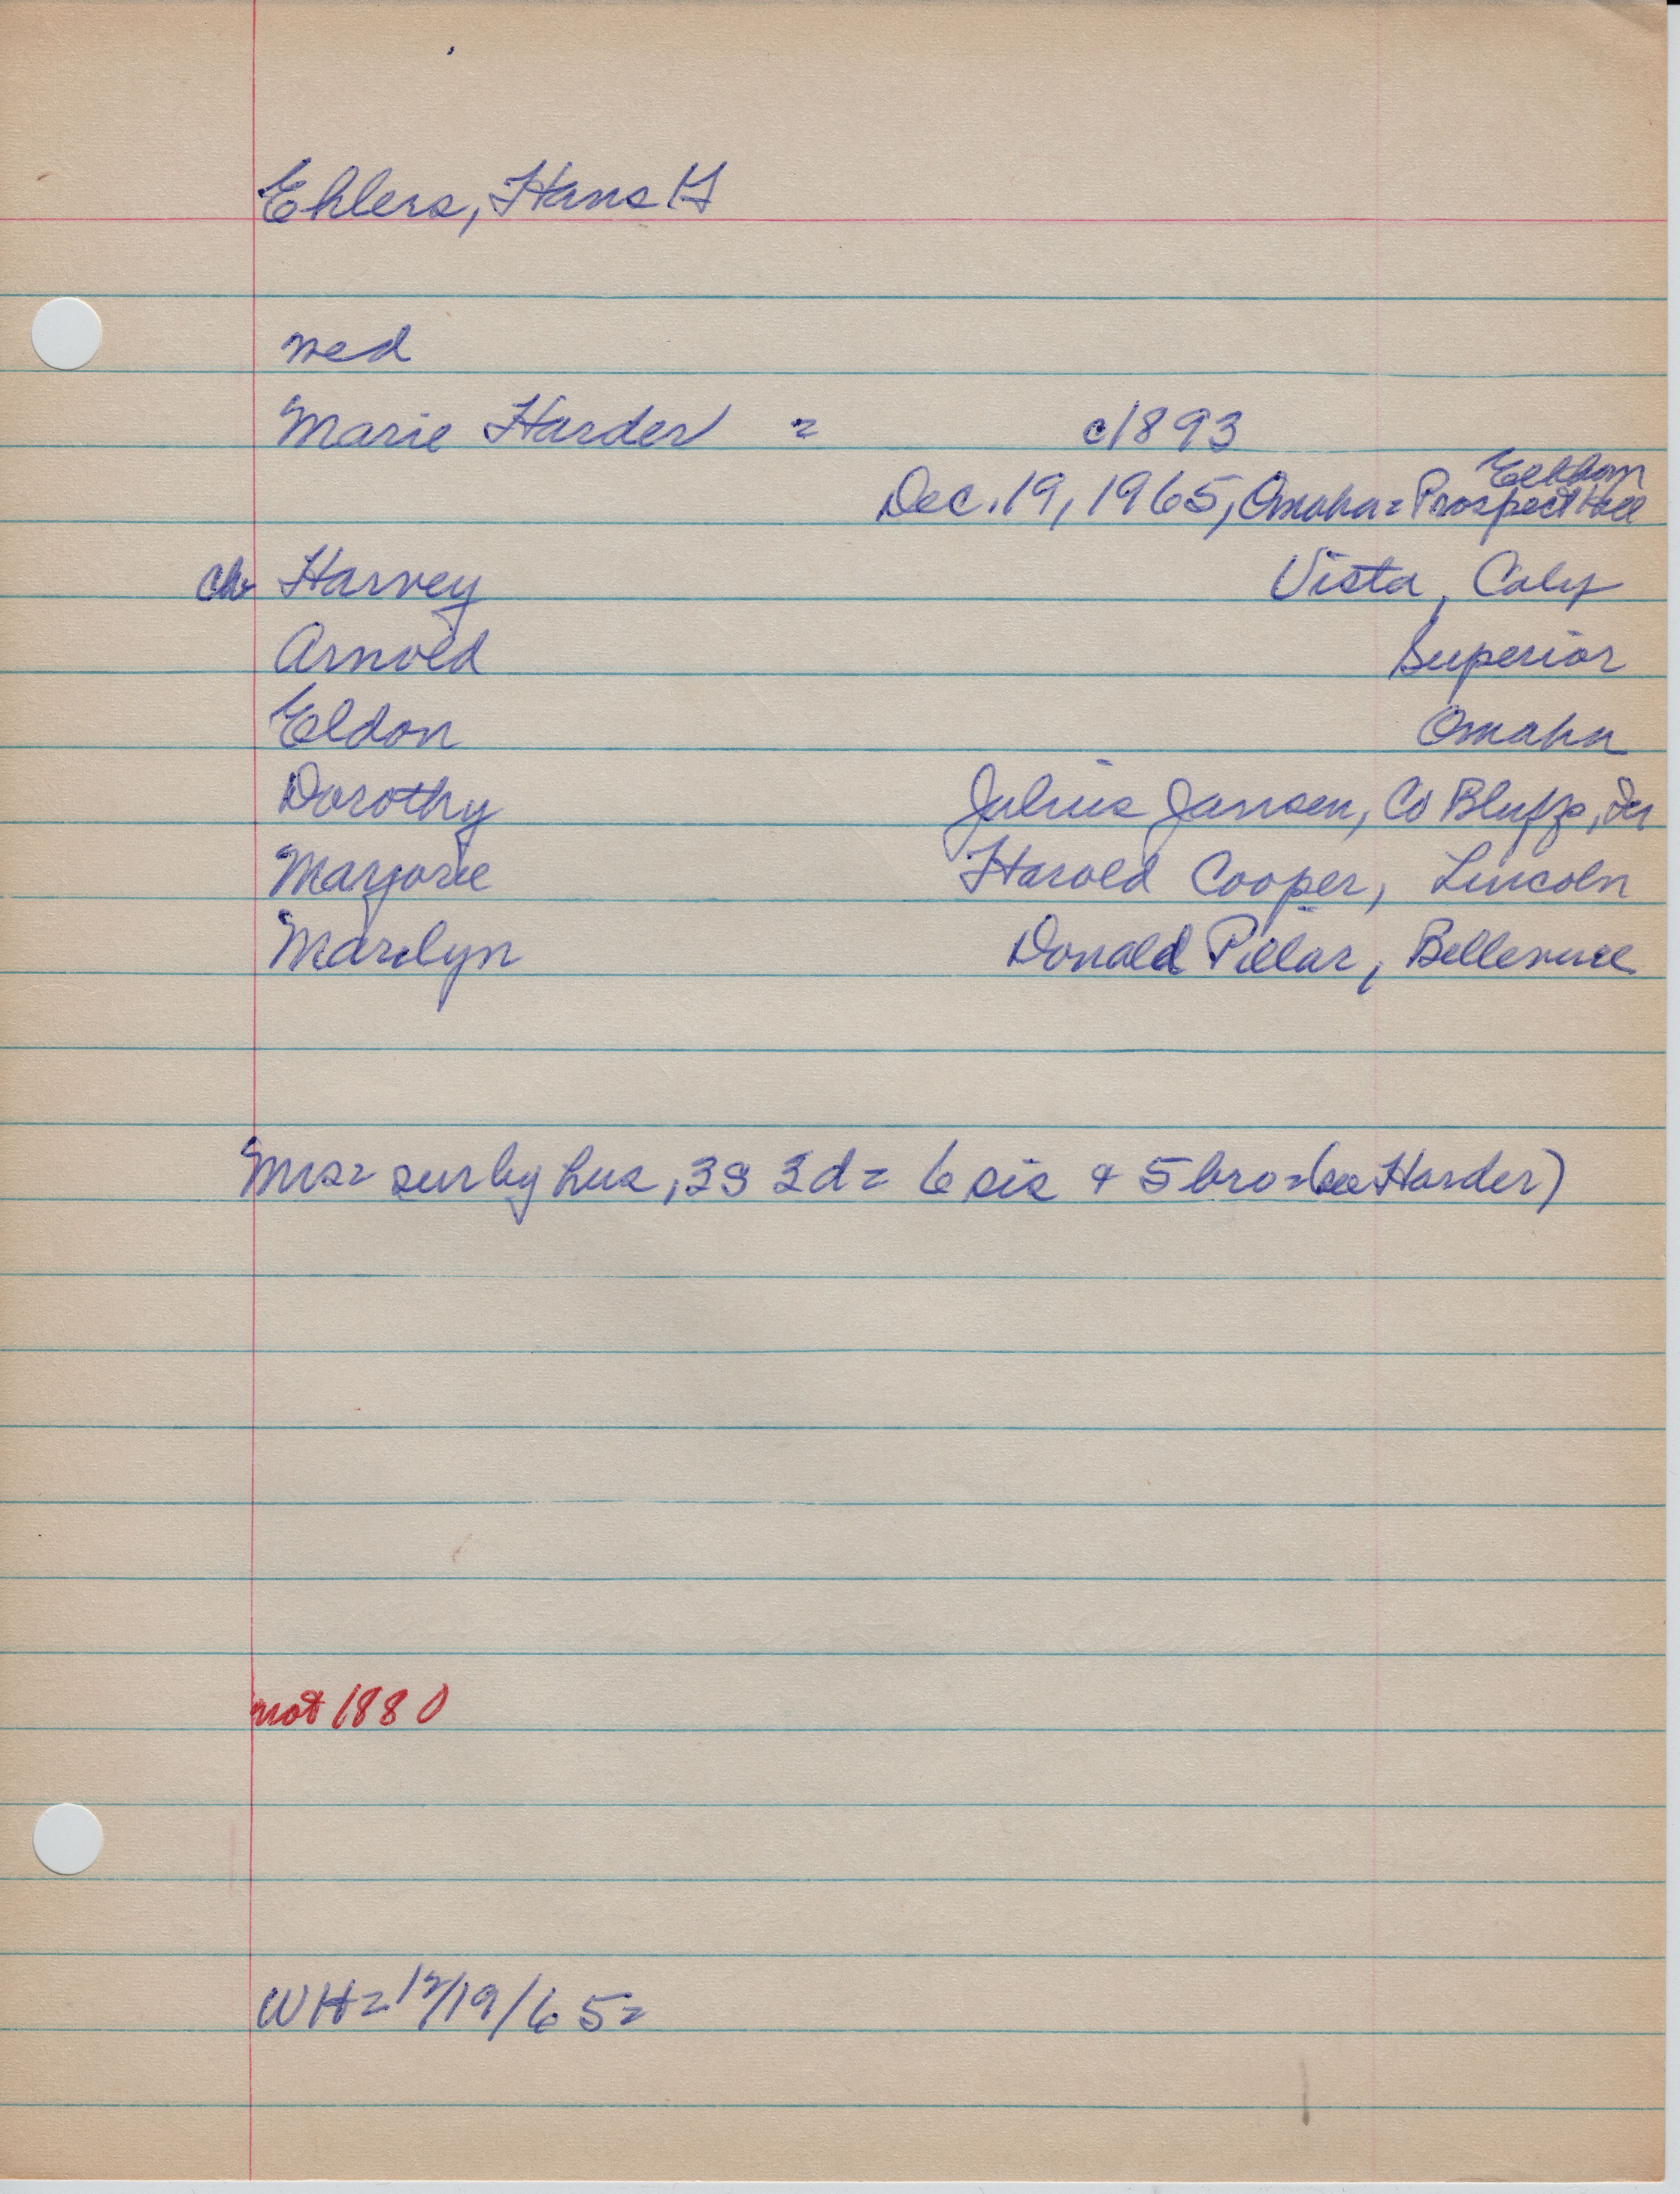 Ehlers, Hans H
med
Marie Harder = c1893
Elkhorn
Dec. 19, 1965, Omaha = Prospect Hill
ch Harvey Vista, Calif
Arnold Superior
Eldon Omaha
Dorothy Julius Jansen, Co Bluffs, Ia
Marjorie Harold Cooper, Lincoln
Marilyn Donald Pillar, Bellevue
Mrs = sur by hus, 3s 3d = 6 sis & 5 bro = (see Harder)
not 1880
WH = 12/19/65 =